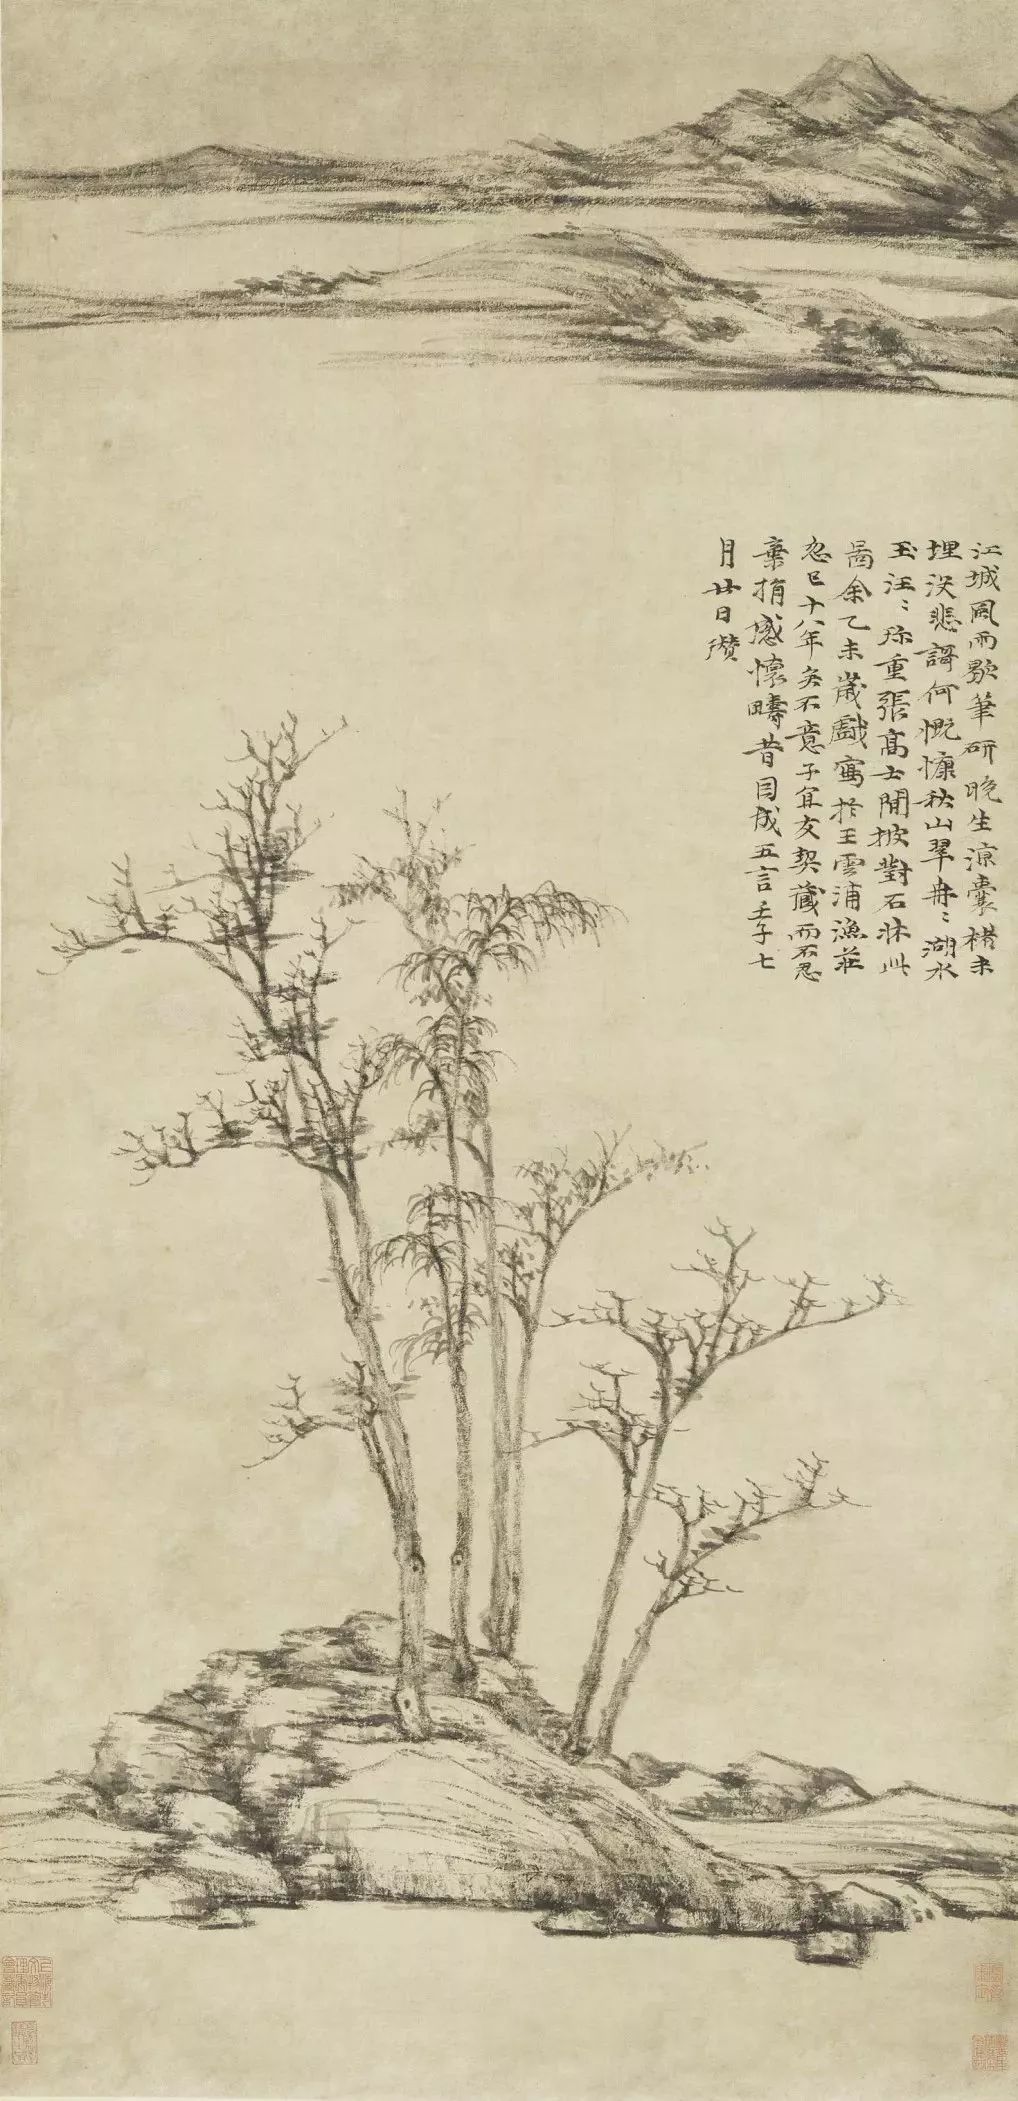 江城風雨歇筆研晚生涼囊楮未
埋没悲謌何慨慷秋山翠冉〻湖水
玉汪〻珎重張高士閒披對石牀此
啚余乙未嵗戲寫扵王雲浦漁莊
忽已十八年矣不意子宜友契藏而不忍
棄捐感懷疇昔因成五言壬子七
月廿日瓚